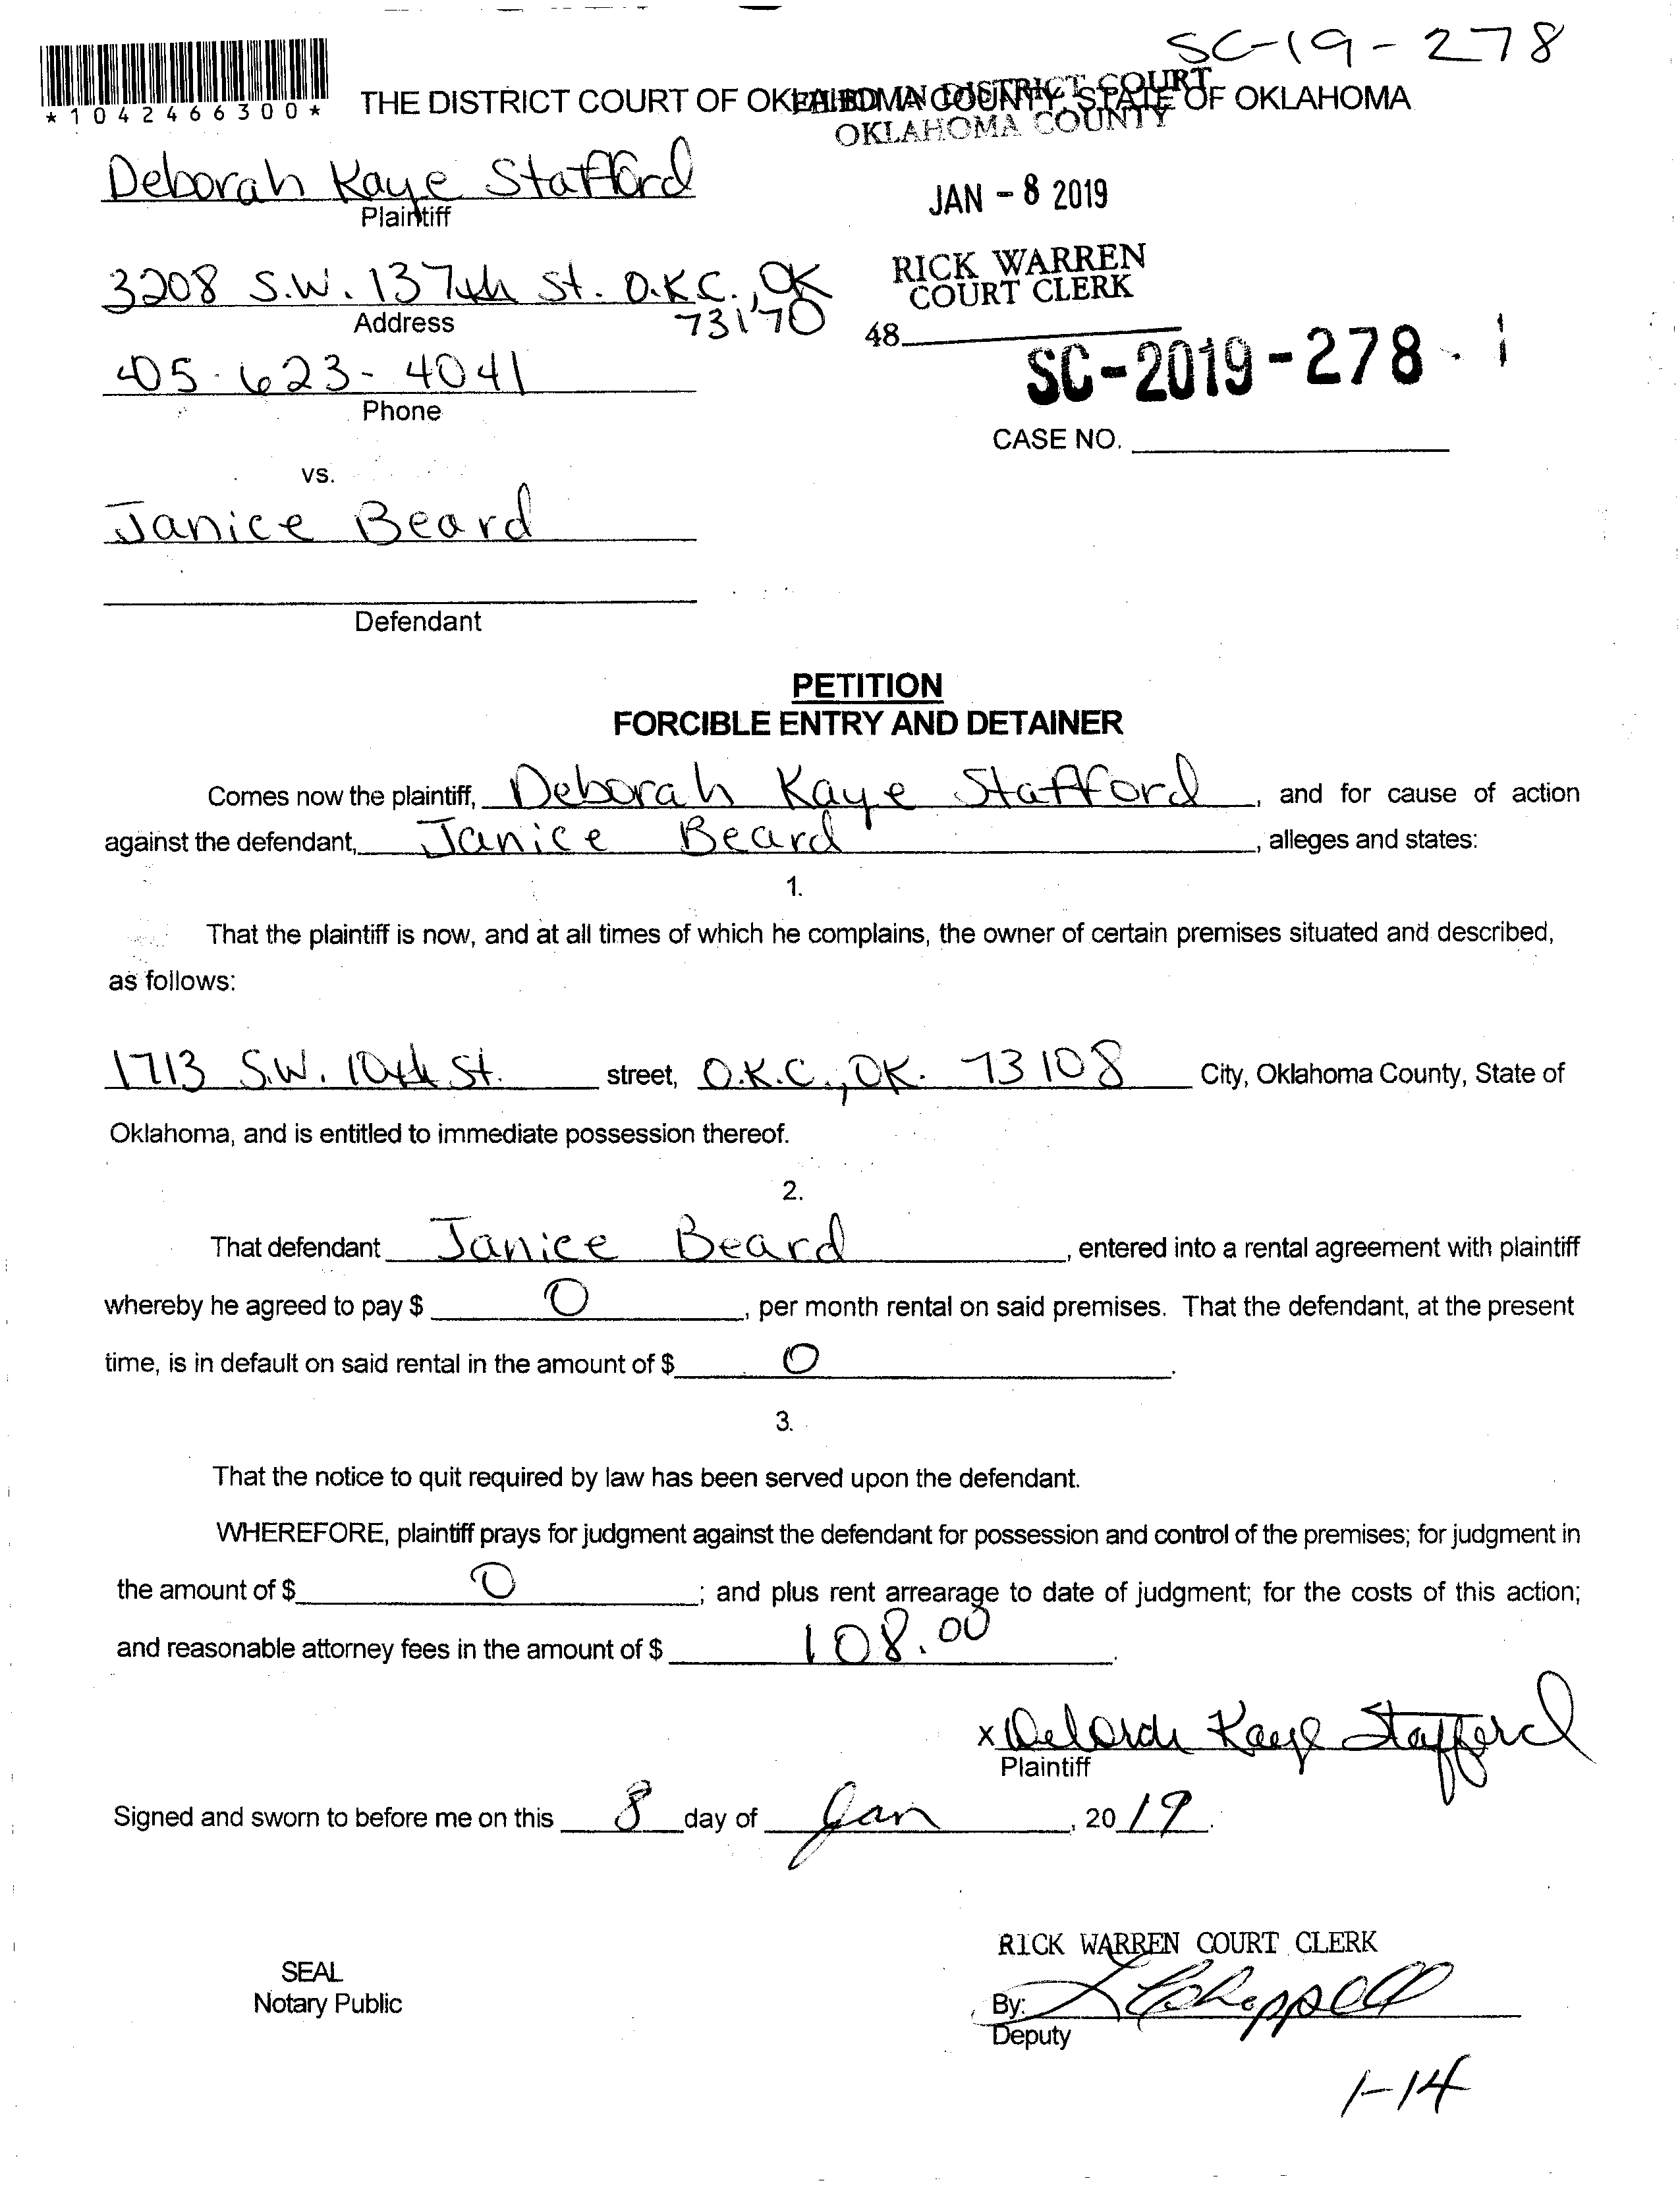 SC-19-278
*1042466300*
THE DISTRICT COURT OF OKLAHOMA COUNTY, STATE OF OKLAHOMA
FILED IN DISTRICT COURT
OKLAHOMA COUNTY
Deborah Kaye Stafford
Plaintiff
JAN - 8 2019
3208 S.W. 137th St. O.K.C., OK
73170
Address
RICK WARREN
COURT CLERK
48
405-623-4041
Phone
SC-2019-278
CASE NO.
vs.
Janice Beard
Defendant
PETITION
FORCIBLE ENTRY AND DETAINER
Comes now the plaintiff, Deborah Kaye Stafford, and for cause of action
against the defendant, Janice Beard, alleges and states:
1.
That the plaintiff is now, and at all times of which he complains, the owner of certain premises situated and described,
as follows:
1713 S.W. 10th St. street, O.K.C., OK. 73108 City, Oklahoma County, State of
Oklahoma, and is entitled to immediate possession thereof.
2.
That defendant Janice Beard, entered into a rental agreement with plaintiff
whereby he agreed to pay $ 0, per month rental on said premises. That the defendant, at the present
time, is in default on said rental in the amount of $ 0.
3.
That the notice to quit required by law has been served upon the defendant.
WHEREFORE, plaintiff prays for judgment against the defendant for possession and control of the premises; for judgment in
the amount of $ 0; and plus rent arrearage to date of judgment; for the costs of this action;
and reasonable attorney fees in the amount of $ 108.00.
x Deborah Kaye Stafford
Plaintiff
Signed and sworn to before me on this 8 day of Jan, 2019.
RICK WARREN COURT CLERK
SEAL
Notary Public
By:
Deputy
1-14